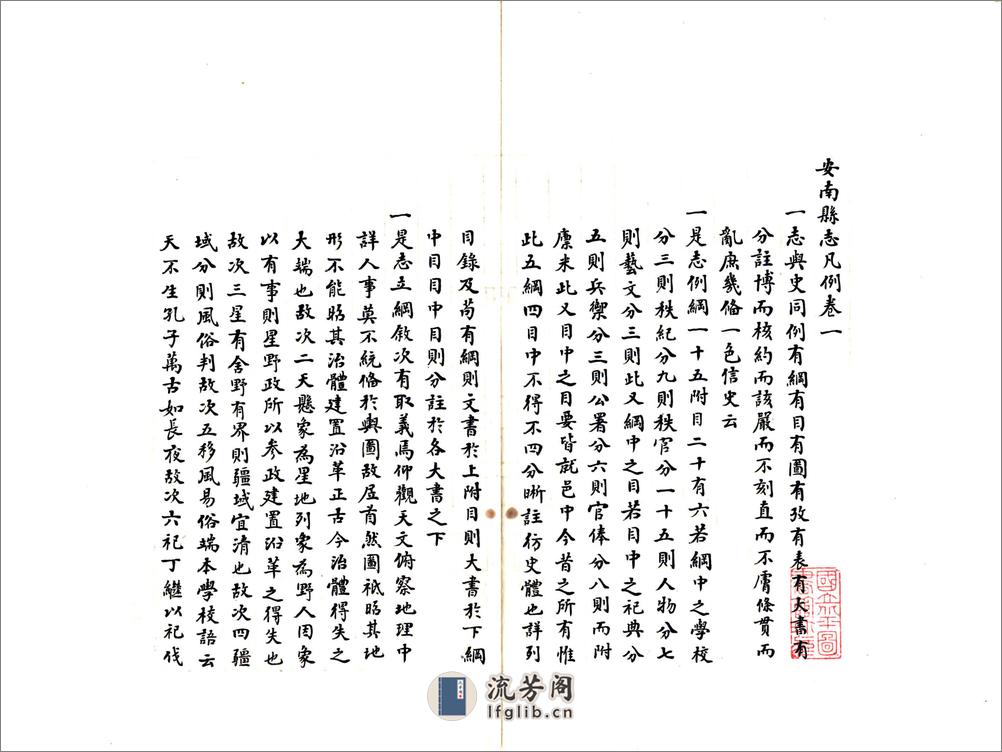 安南縣志凡例卷一
一志與史同例有綱有目有圖有攷有表有大書有
分註博而核約而該嚴而不刻直而不膚條貫而
亂庶幾僃一色信史云
一是志例綱一十五附目二十有六若綱中之學校
分三則秩紀分九則秩官分一十五則人物分七
則藝文分三則此又綱中之目若目中之祀典分
五則兵禦分三則公署分六則官俸分八則而附
廩米此又目中之目要皆就邑中今昔之所有惟
此五綱四目中不得不四分晰註彷史體也詳列
目錄及苟有綱則文書於上附目則大書於下綱
中目目中目則分註於各大書之下
一是志立綱敘次有取義焉仰觀天文俯察地理中
詳人事莫不統僃於輿圖故居首然圖祇昭其地
形不能昭其治體建置沿革正古今治體得失之
大端也故次二天懸象為星地列象為野人因象
以有事則星野政所以參政建置沿革之得失也
故次三星有舍野有界則疆域宜清也故次四疆
域分則風俗判故次五移風易俗端本學校語云
天不生孔子萬古如長夜故次六祀丁繼以祀伐
流芳阁
lfglib.cn